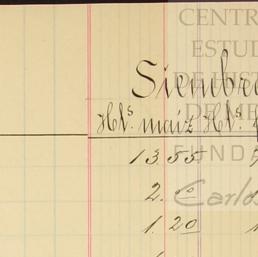 CENTR
ESTUD
Siembra
DE HIST
Hts. maiz Hts.
DE ME
13 55
FUND
2.
Carlos
1. 20